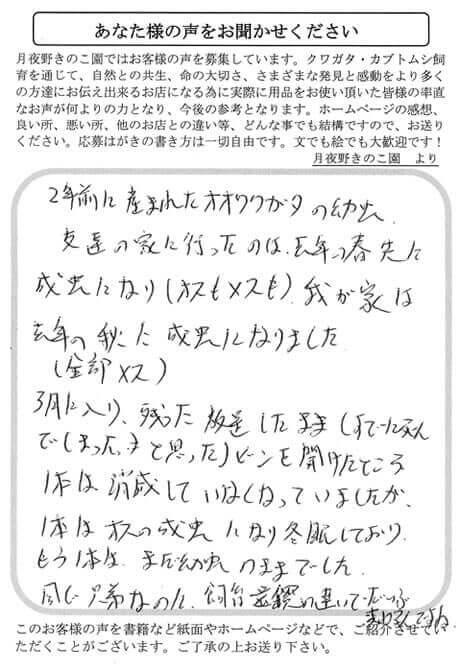 あなた様の声をお聞かせください
月夜野きのこ園ではお客様の声を募集しています。クワガタ・カブトムシ飼
育を通じて、自然との共生、命の大切さ、さまざまな発見と感動をより多く
の方達にお伝え出来るお店になる為に実際に用品をお使い頂いた皆様の率直
なお声が何よりの力となり、今後の参考となります。ホームページの感想、
良い所、悪い所、他のお店との違い等、どんな事でも結構ですので、お送り
ください。応募はがきの書き方は一切自由です。文でも絵でも大歓迎です！
月夜野きのこ園　より
2年前に産まれたオオクワガタの幼虫、
友達の家に行ったのは、去年の春先に
成虫になり(オスもメスも)、我が家は
去年の秋に成虫になりました
(全部メス)
3月に入り、残った放置したまま(すでに死ん
でしまった、きと思った)ビンを開けたところ
1本は消滅していなくなっていましたが、
1本はオスの成虫になり冬眠しており、
もう1本は、まだ幼虫のままでした。
同じ兄弟なのに、飼育の違いでだいぶ
ですね
このお客様の声を書籍など紙面やホームページなどで、ご紹介させてい
ただくことがございます。ご了承の上お送り下さい。